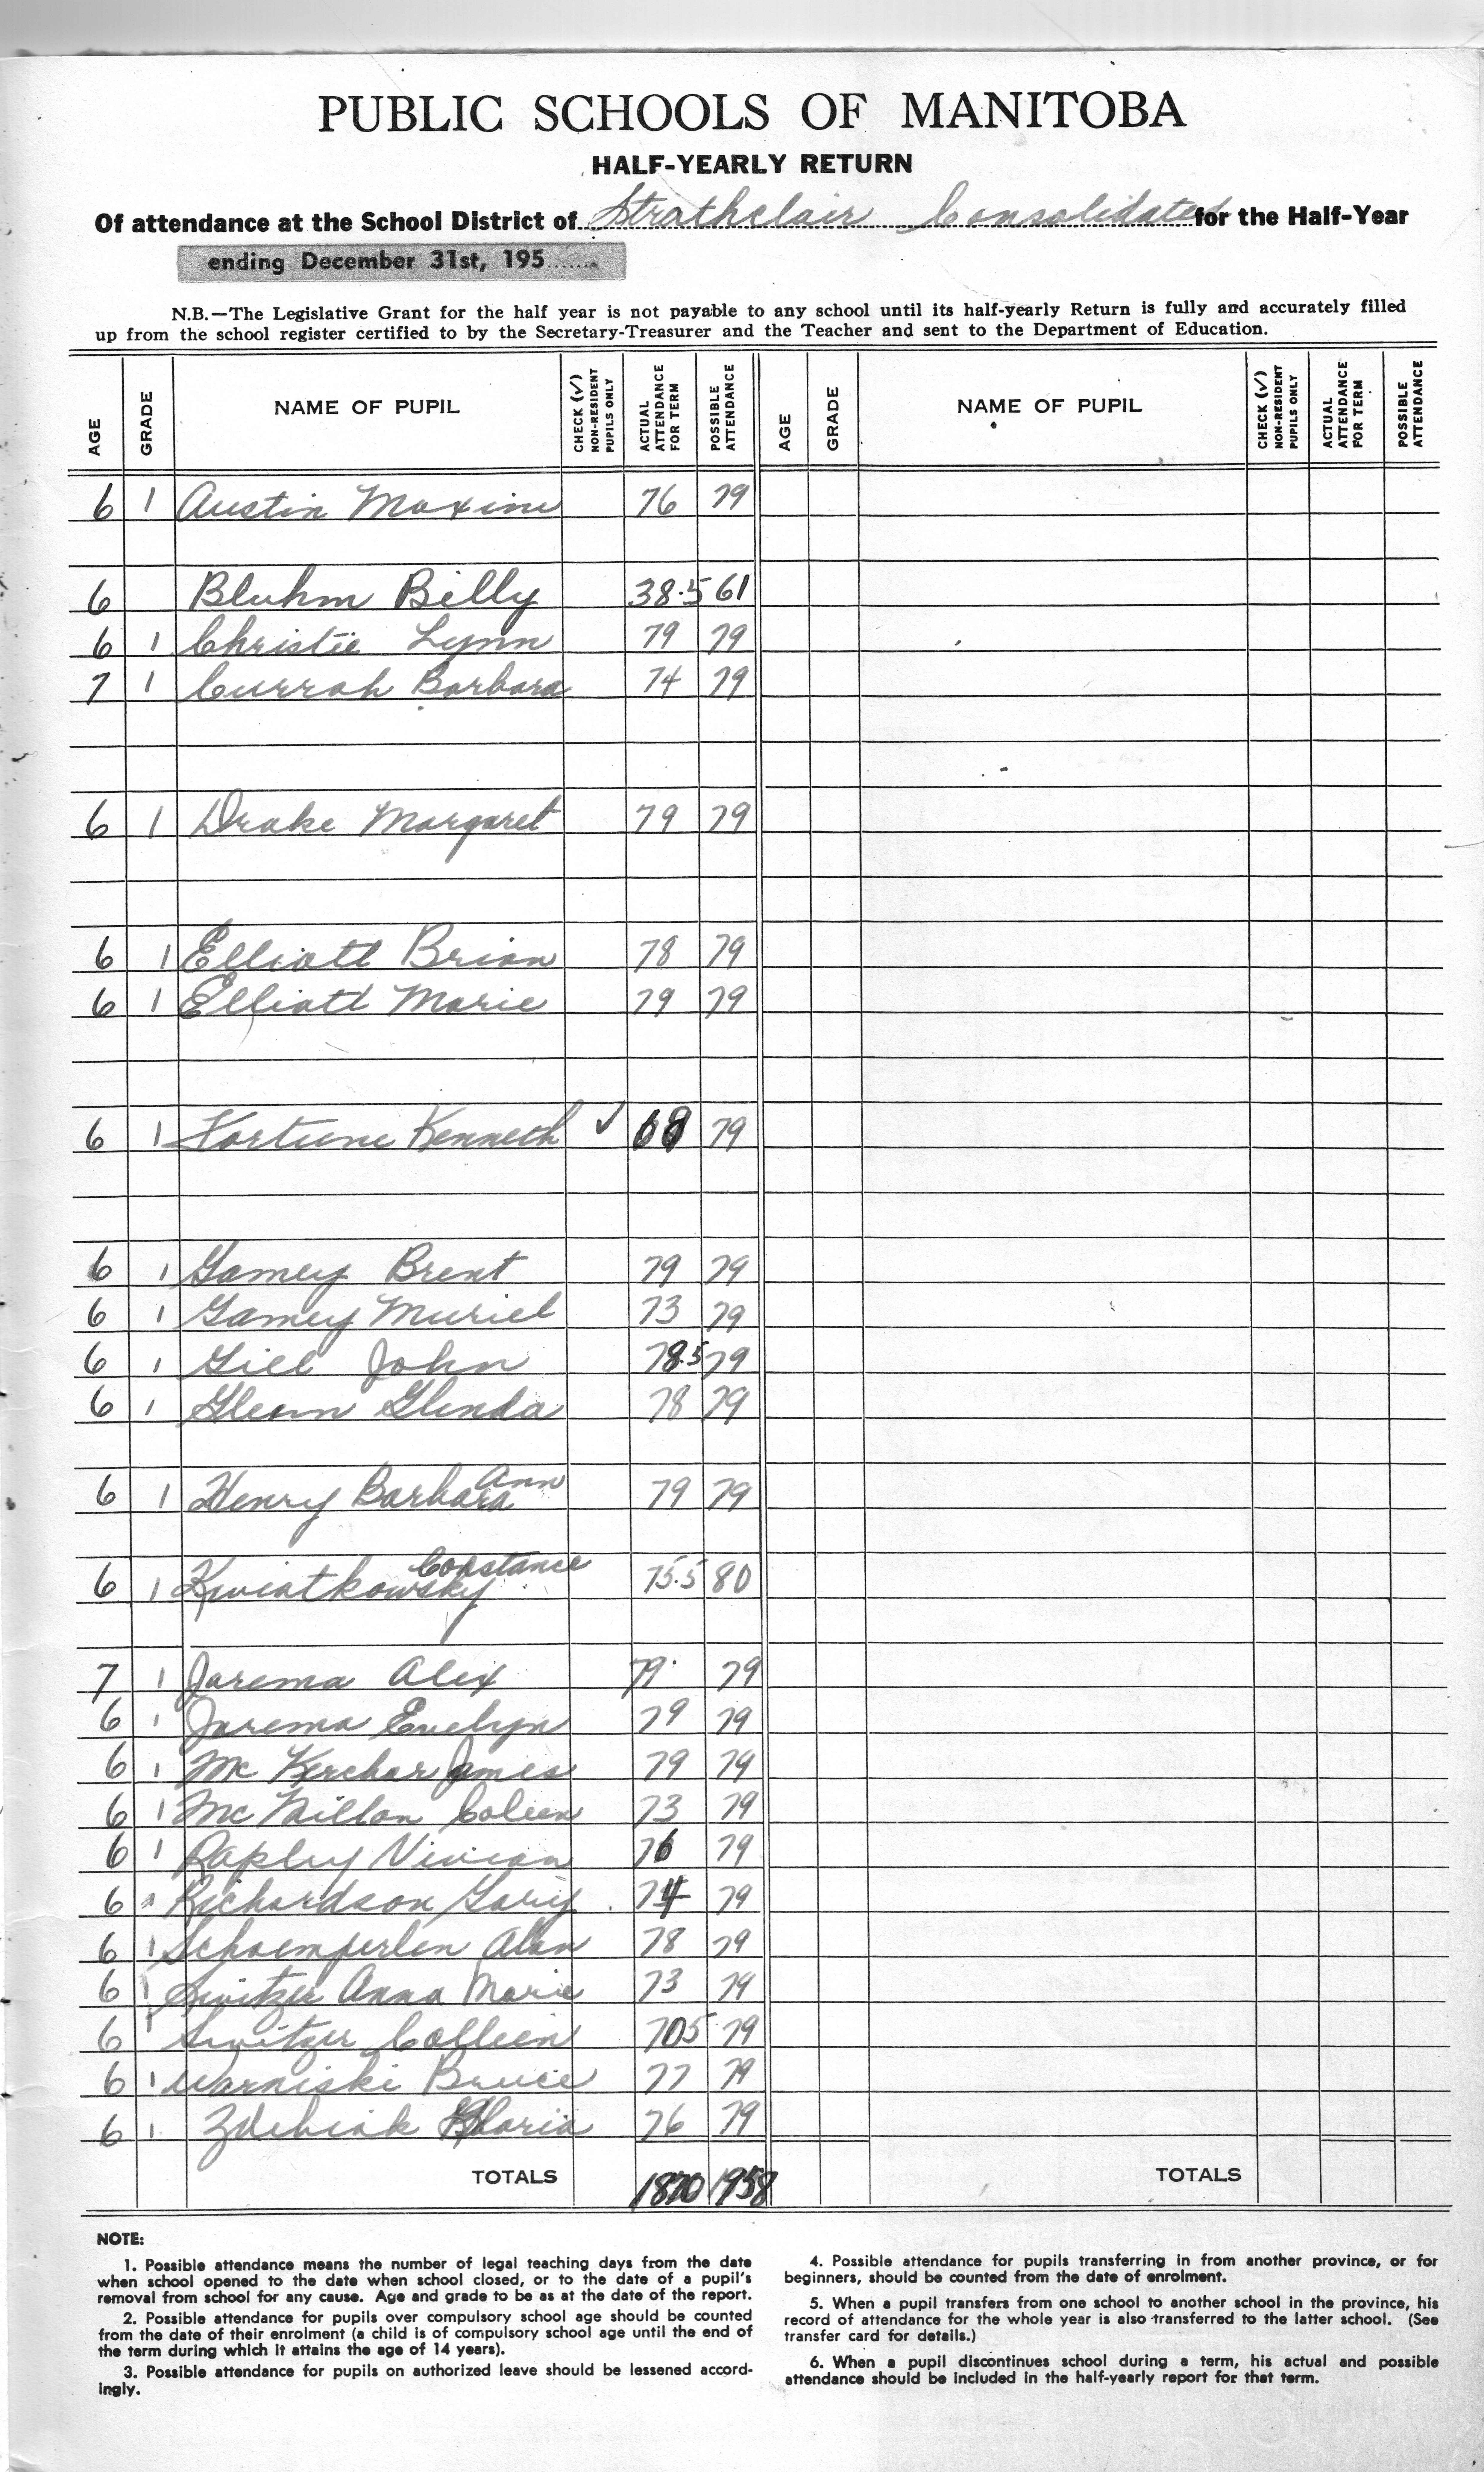 PUBLIC SCHOOLS OF MANITOBA
HALF-YEARLY RETURN
Of attendance at the School District of Strathclair Consolidated for the Half-Year
ending December 31st, 195........
N.B.—The Legislative Grant for the half year is not payable to any school until its half-yearly Return is fully and accurately filled
up from the school register certified to by the Secretary-Treasurer and the Teacher and sent to the Department of Education.
AGE GRADE NAME OF PUPIL CHECK (✓) NON-RESIDENT PUPILS ONLY ACTUAL ATTENDANCE FOR TERM POSSIBLE ATTENDANCE AGE GRADE NAME OF PUPIL CHECK (✓) NON-RESIDENT PUPILS ONLY ACTUAL ATTENDANCE FOR TERM POSSIBLE ATTENDANCE
6 1 Austin Maxine 76 79
6 Bluhm Billy 38.5 61
6 1 Christie Lynn 79 79
7 1 Currah Barbara 74 79
6 1 Drake Margaret 79 79
6 1 Elliott Brian 78 79
6 1 Elliott Marie 79 79
6 1 Fortune Kenneth ✓ 68 79
6 1 Gamey Brent 79 79
6 1 Gamey Muriel 73 79
6 1 Gill John 78.5 79
6 1 Glenn Glenda 78 79
6 1 Henry Barbara Ann 79 79
6 1 Kwiatkowsky Constance 75.5 80
7 1 Jarema Alex 79 79
6 1 Jarema Evelyn 79 79
6 1 Mc Kerchar James 79 79
6 1 Mc Millan Coleen 73 79
6 1 Rapley Vivian 76 79
6 1 Richardson Gary 74 79
6 1 Schoemperlen Alan 78 79
6 1 Switzer Anna Marie 73 79
6 1 Switzer Colleen 70.5 79
6 1 Warniski Bruce 77 79
6 1 Zdebiak Gloria 76 79
TOTALS 1870 1958 TOTALS
NOTE:
1. Possible attendance means the number of legal teaching days from the date
when school opened to the date when school closed, or to the date of a pupil's
removal from school for any cause. Age and grade to be as at the date of the report.
2. Possible attendance for pupils over compulsory school age should be counted
from the date of their enrolment (a child is of compulsory school age until the end of
the term during which it attains the age of 14 years).
3. Possible attendance for pupils on authorized leave should be lessened accord-
ingly.
4. Possible attendance for pupils transferring in from another province, or for
beginners, should be counted from the date of enrolment.
5. When a pupil transfers from one school to another school in the province, his
record of attendance for the whole year is also transferred to the latter school. (See
transfer card for details.)
6. When a pupil discontinues school during a term, his actual and possible
attendance should be included in the half-yearly report for that term.